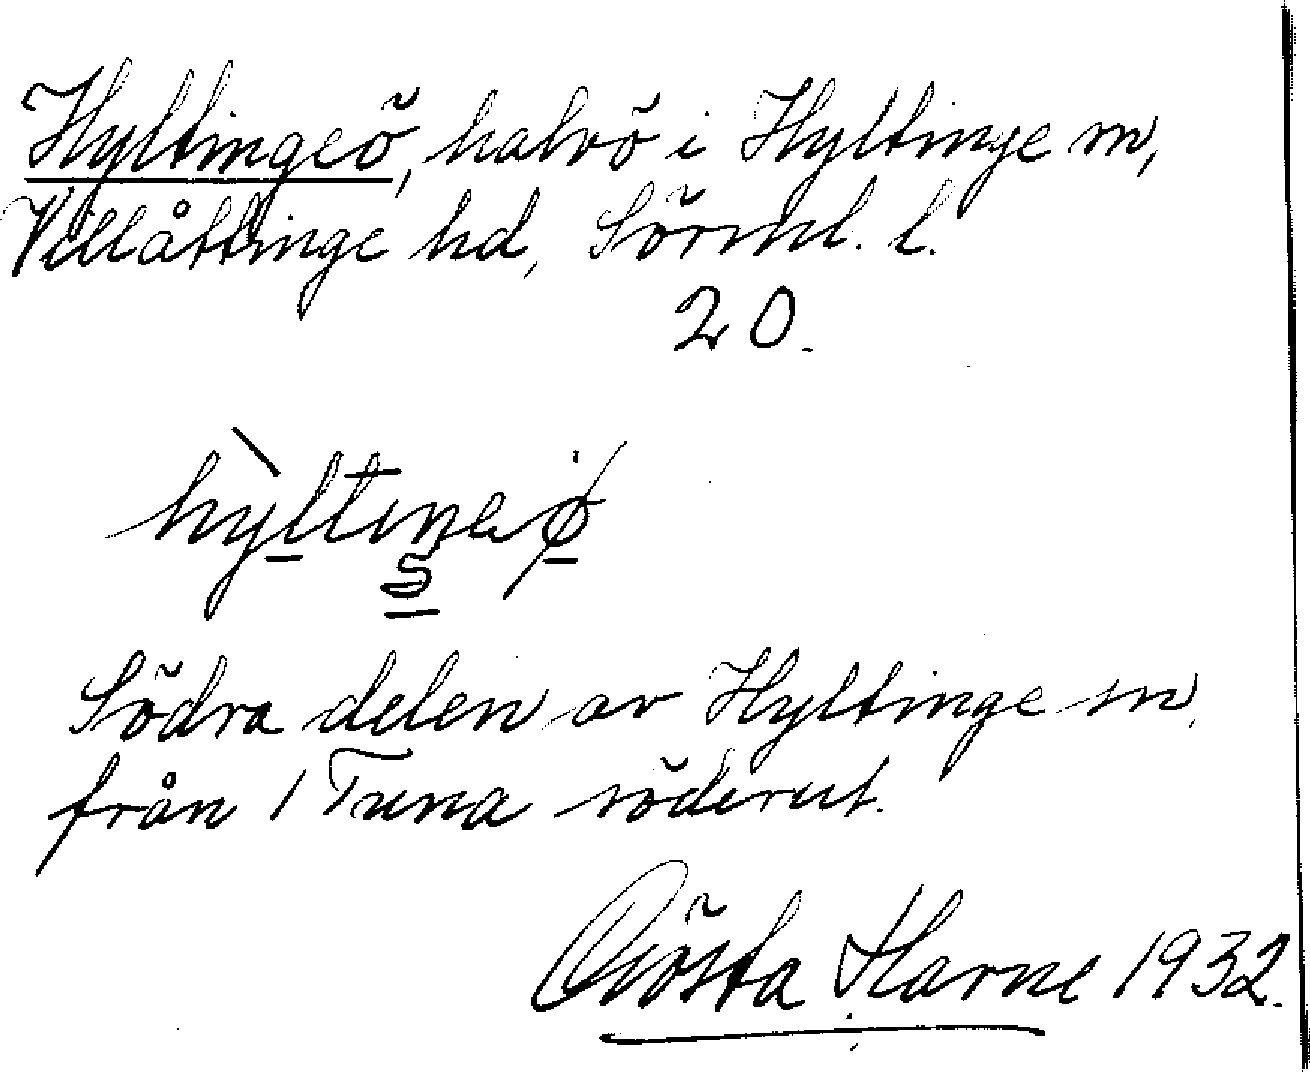 Hyltingeö, halvö i Hyltinge sn,
Villåttinge hd, Sörml. l.
20.
hỳltiŋeø
Södra delen av Hyltinge sn,
från / Tuna söderut.
Gösta Harne 1932.